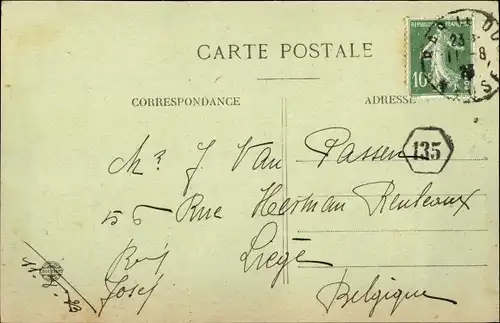 CARTE POSTALE
CORRESPONDANCE
ADRESSE
REPUBLIQUE FRANÇAISE
10
135
Mr J. Van Passen
56 Rue Herman Reuleaux
Liège
Belgique
Josef